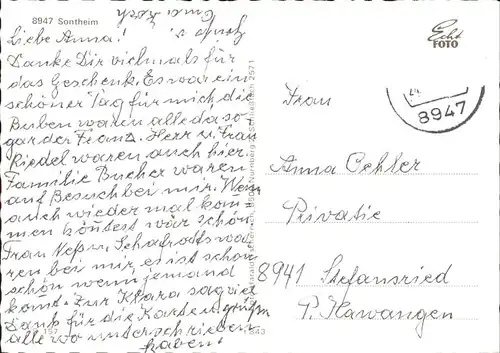 8947 Sontheim
Echt
FOTO
Liebe Anna!
Danke Dir vielmals für
das Geschenk. Es war ein
schöner Tag für mich die
Buben waren alle da so-
gar der Franz. Herr u. Frau
Riedel waren auch hier.
Familie Bucher waren
auf Besuch bei mir. Wen
auch wieder mal kom
men könntest wär schön.
Frau Neß u. Schafrodts wa
ren bei mir, es ist schön
schön wenn jemand
komt. Zur Klara sag viel
Dank für die Karten grüßen
alle wo unterschrieben
haben!
Frau
8947
Anna Oehler
Privatie
8941 Stefansried
P. Hawangen
157
543